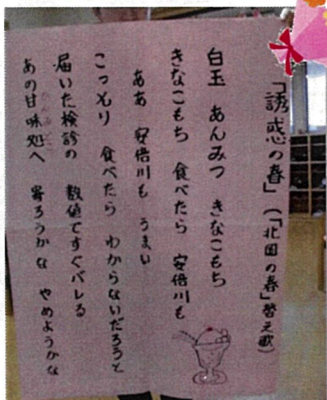 「誘惑の春」(「北国の春」替え歌)
白玉 あんみつ きなこもち
きなこもち 食べたら 安倍川も
ああ 安倍川も うまい
こっそり 食べたら わからないだろうと
届いた検診の 数値ですぐバレる
あの甘味処へ 寄ろうかな やめようかな